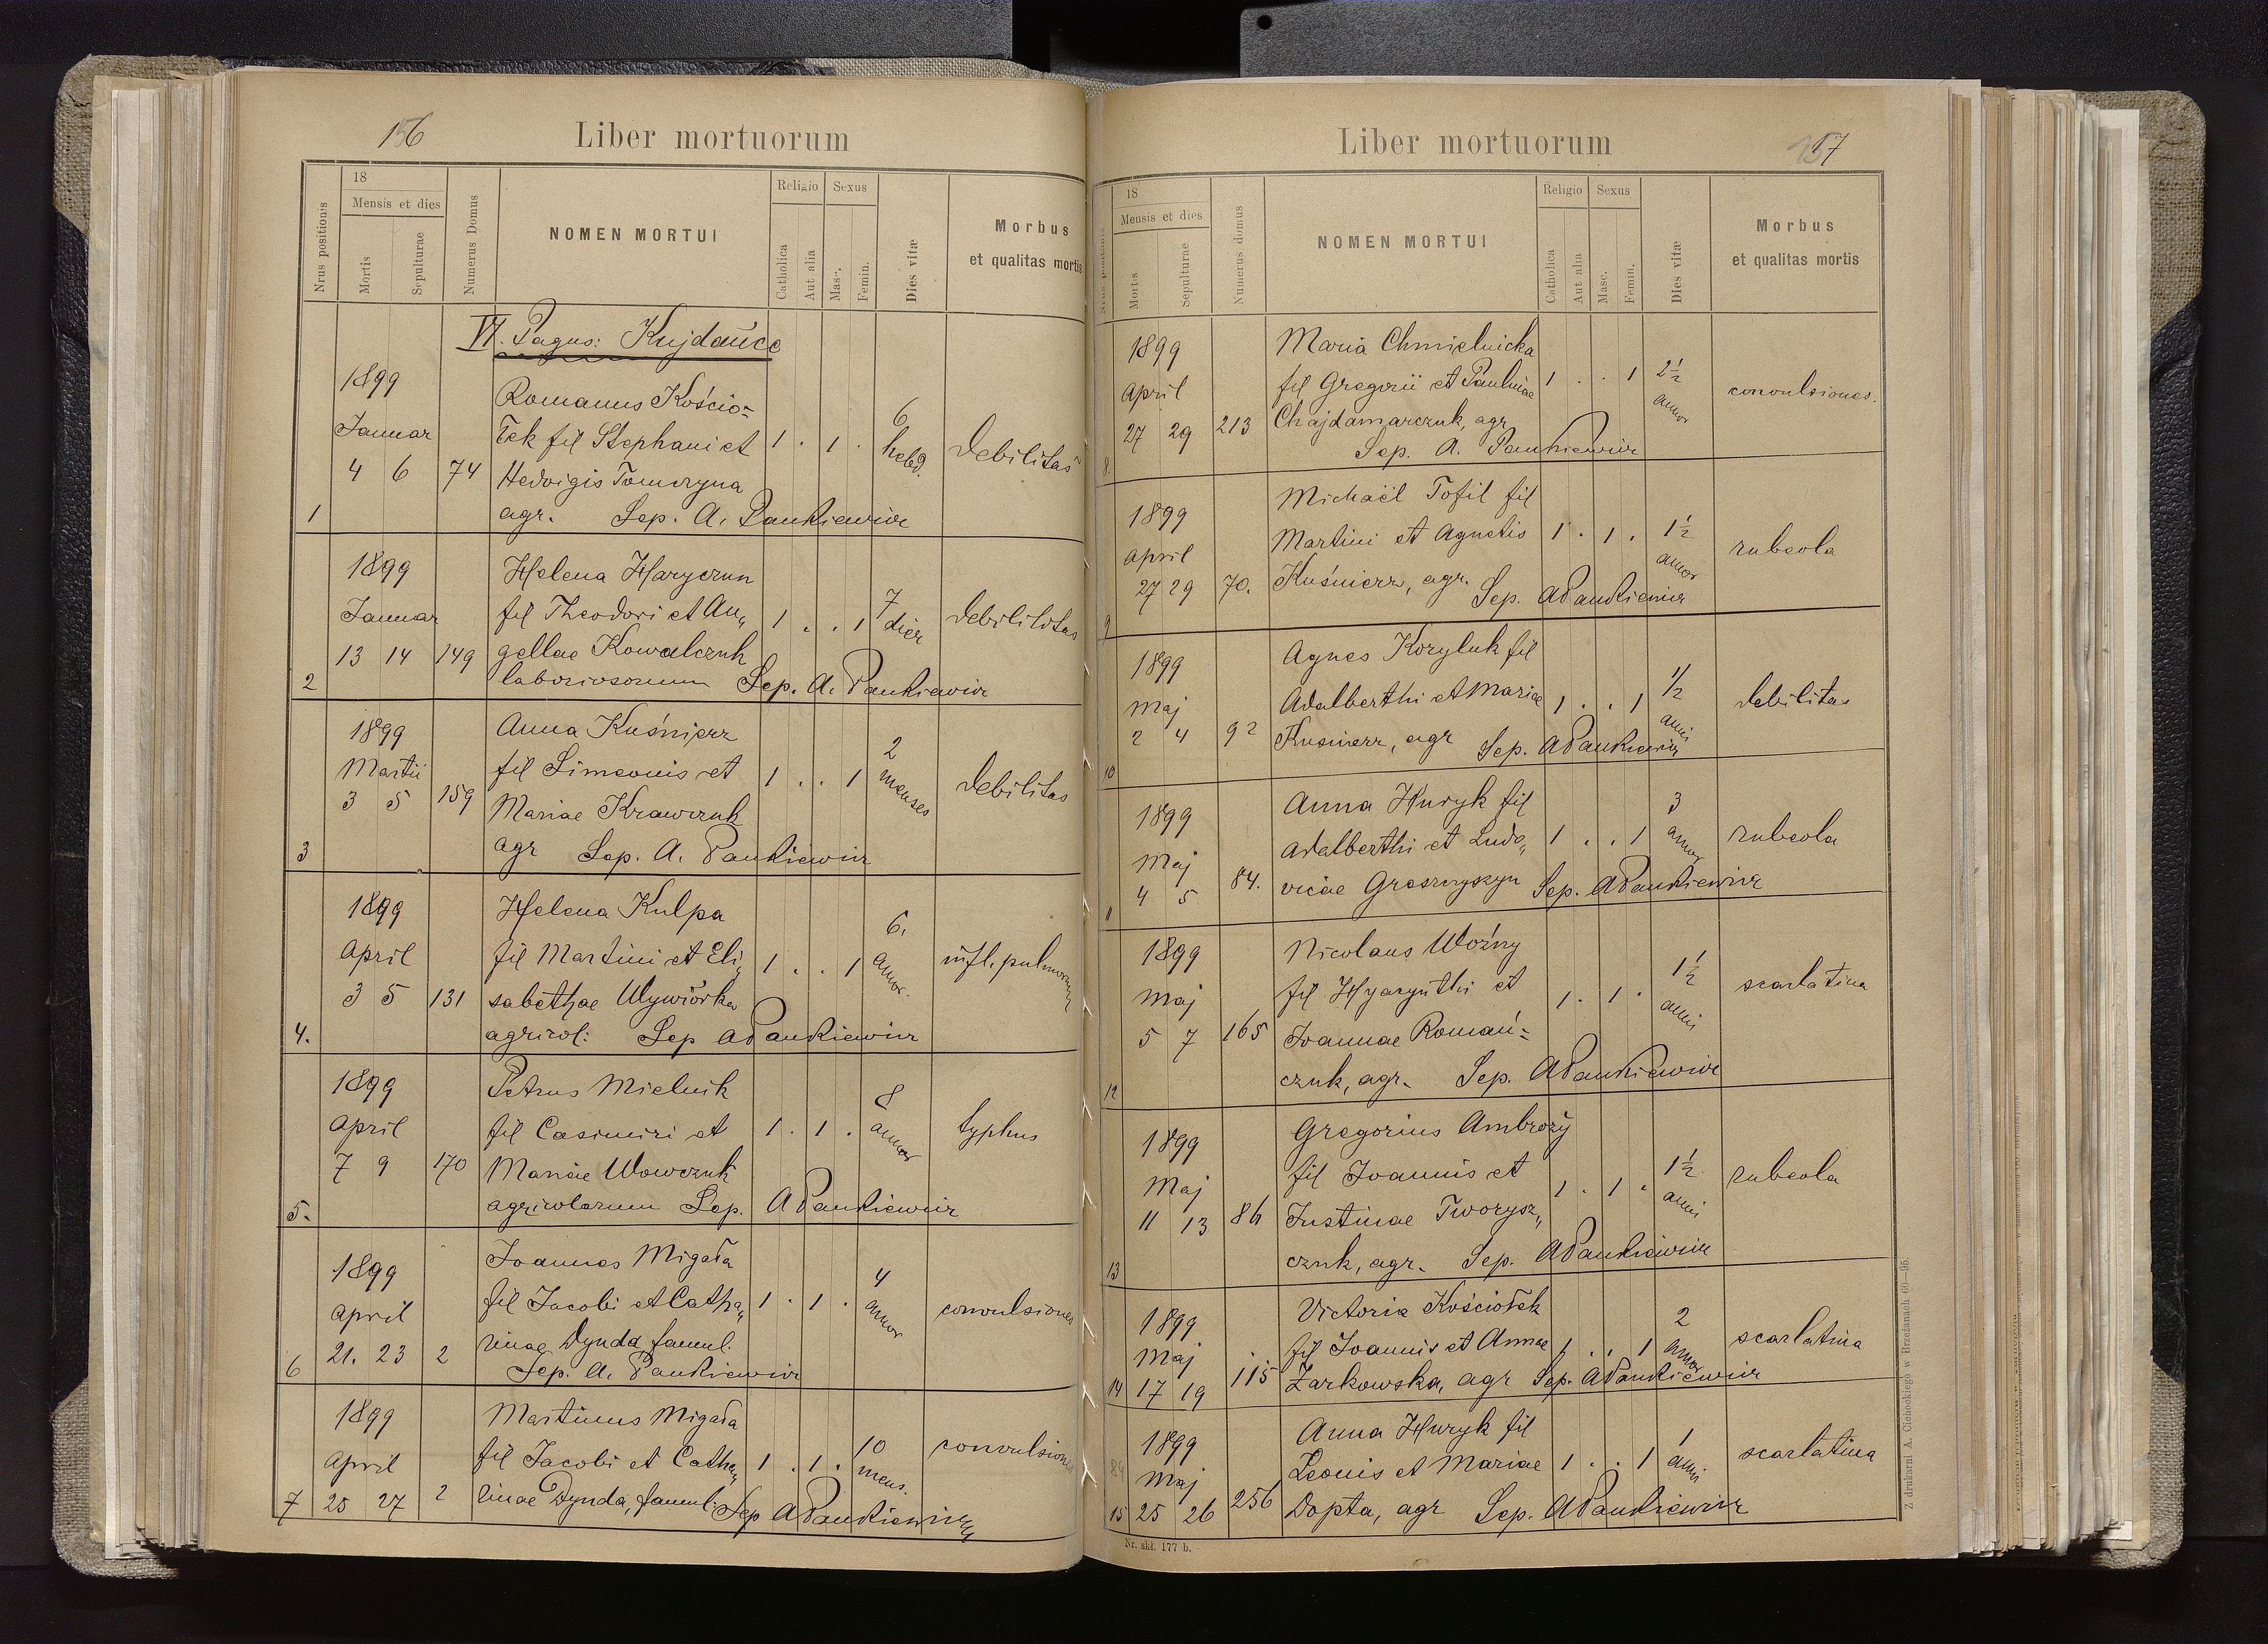 156
Liber mortuorum
Nrus positionis
18
Mensis et dies
Mortis
Sepulturae
Numerus Domus
NOMEN MORTUI
Religio
Catholica
Aut alia
Sexus
Masc.
Femin.
Dies vitæ
Morbus
et qualitas mortis
VI. Pagus: Kujdańce
1899
Januar
4 6 74
1
Romanus Kościo=
łek fil Stephani et
Hedvigis Tomczyna
agr. Sep. A. Pankiewicz
1 . 1 .
6
hebd.
debilitas
1899
Januar
13 14 149
2
Helena Haryczun
fil Theodori et An„
gellae Kowalczuk
laboriosorum Sep. A. Pankiewicz
1 . . 1
7
dier
debilitas
1899
Martii
3 5 159
3
Anna Kuśnierz
fil Simeonis et
Mariae Krawczuk
agr Sep. A. Pankiewicz
1 . . 1
2
menses
debilitas
1899
April
3 5 131
4.
Helena Kulpa
fil Martini et Eli„
sabethae Wywiórka
agricol: Sep A Pankiewicz
1 . . 1
6.
annor.
infl. pulmonum
1899
April
7 9 170
5.
Petrus Mielnik
fil Casimiri et
Mariae Wowczuk
agricolarum Sep. A Pankiewicz
1 . 1 .
8
annor
typhus
1899
April
21. 23 2
6
Joannes Migała
fil Jacobi et Catha„
rinae Dynda famul.
Sep. A. Pankiewicz
1 . 1 .
4
annor
convulsiones
1899
April
25 27 2
7
Martinus Migała
fil Jacobi et Cathe„
rinae Dynda, famul: Sep A Pankiewicz
1 . 1 .
10
mens.
convulsiones
157
Liber mortuorum
Nrus positionis
18
Mensis et dies
Mortis
Sepulturae
Numerus domus
NOMEN MORTUI
Religio
Catholica
Aut alia
Sexus
Masc.
Femin.
Dies vitæ
Morbus
et qualitas mortis
1899
April
27 29 213
8.
Maria Chmielnicka
fil Gregorii et Paulinae
Chajdamarczuk, agr
Sep. A. Pankiewicz
1 . . 1
2½
annor
convulsiones.
1899
April
27 29 70.
9
Michaël Tofil fil
Martini et Agnetis
Kuśnierz, agr. Sep. A Pankiewicz
1 . 1 .
1½
annor
rubeola
1899
Maj
2 4 92
10
Agnes Koryluk fil
Adalberthi et Mariae
Kusnierz, agr Sep. A Pankiewicz
1 . . 1
1/2
anni
debilitas
1899
Maj
4 5 84.
11
Anna Huryk fil
Adalberthi et Ludo„
vicae Greszczyszyn Sep. A Pankiewicz
1 . . 1
3
annor
rubeola
1899
Maj
5 7 165
12
Nicolaus Woźny
fil Hyacynthi et
Joannae Romań=
czuk, agr. Sep. A Pankiewicz
1 . 1 .
1½
anni
scarlatina
1899
Maj
11 13 86
13
Gregorius Ambroży
fil Joannis et
Justinae Tworysz„
czuk, agr. Sep. A Pankiewicz
1 . 1 .
1½
anni
rubeola
1899
Maj
14 17 19 115
Victoria Kościołek
fil Joannis et Annae
Żarkowska, agr Sep. A Pankiewicz
1 . . 1
2
annor
scarlatina
1899
Maj
15 25 26 256
Anna Huryk fil
Leonis et Mariae
Dopta, agr Sep. A Pankiewicz
1 . . 1
1
anni
scarlatina
Nr. skł. 177 b.
Z drukarni A. Cichockiego w Brzeżanach